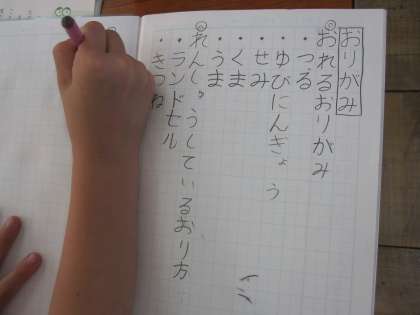 おりがみ
おれるおりがみ
・つる
・ゆびにんぎょう
・せみ
・くま
・うま
れんしゅうしているおり方
・ランドセル
・きつね